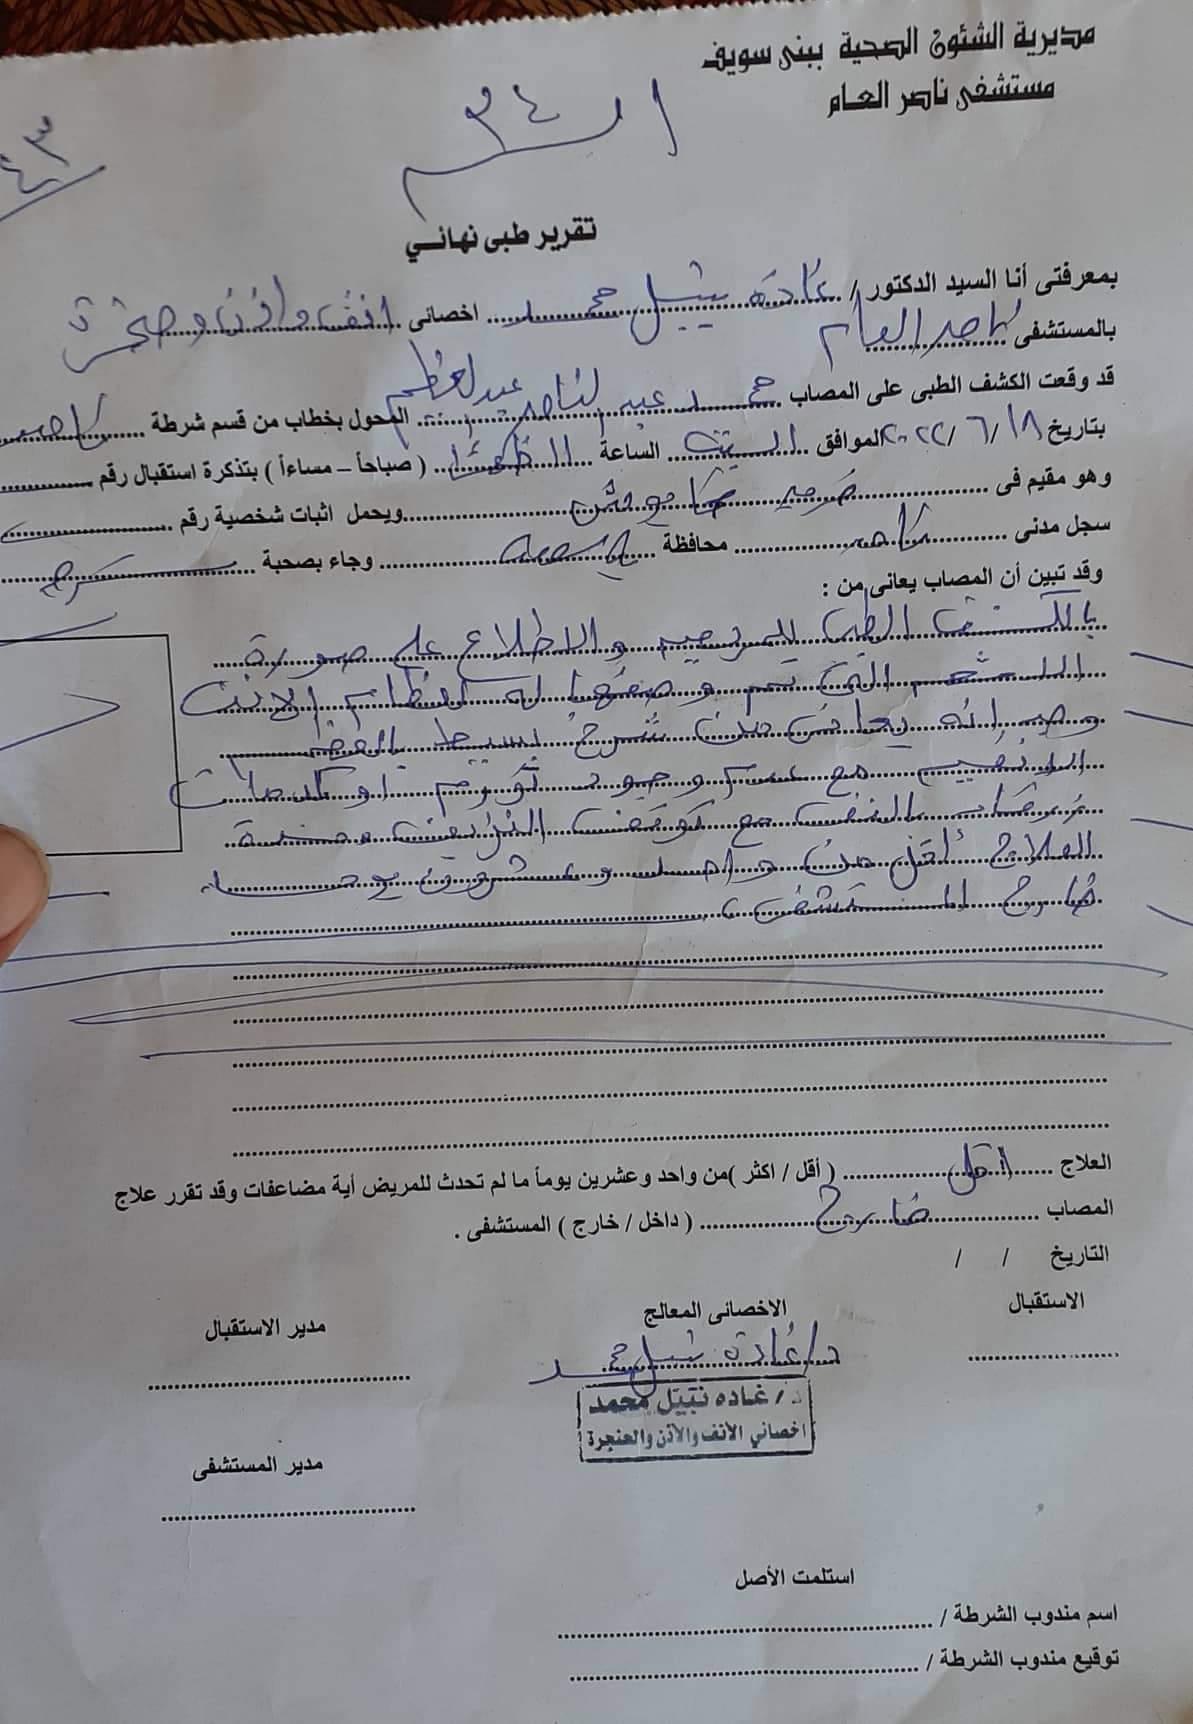 مديرية الشئون الصحية ببنى سويف
مستشفى ناصر العام
٣٤
٤٣
تقرير طبى نهائي
بمعرفتى أنا السيد الدكتور / غادة نبيل محمد اخصائى انف واذن وحنجرة
بالمستشفى ناصر العام
قد وقعت الكشف الطبى على المصاب محمد عبد الناصر عبدالعظيم المحول بخطاب من قسم شرطة ناصر
بتاريخ ١٨ / ٦ / ٢٠٢٢ الموافق السبت الساعة ( صباحاً – مساءاً ) بتذكرة استقبال رقم
وهو مقيم فى ويحمل اثبات شخصية رقم
سجل مدنى ناصر محافظة وجاء بصحبة
وقد تبين أن المصاب يعانى من :
بالكشف الطبى والاطلاع على صورة
التى تم لعظام الانف
انه يعانى من شرخ بسيط بالعظم
الانفى مع عدم وجود تورم او كدمات
بالانف مع توقف النزيف ومدة
العلاج أقل من واحد وعشرون يوما
خارج المستشفى
العلاج اقل ( أقل / اكثر )من واحد وعشرين يوماً ما لم تحدث للمريض أية مضاعفات وقد تقرر علاج
المصاب خارج ( داخل / خارج ) المستشفى .
التاريخ / /
الاستقبال الاخصائى المعالج مدير الاستقبال
د/ غادة نبيل محمد
د / غاده نبيل محمد
اخصائي الأنف والأذن والحنجرة
مدير المستشفى
استلمت الأصل
اسم مندوب الشرطة /
توقيع مندوب الشرطة /